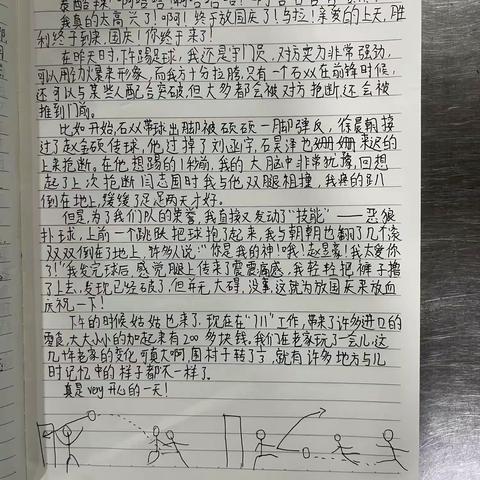 我真的太高兴了!啊!终于放国庆了!乌拉!亲爱的上天,胜
利终于到来,国庆!你终于来了!
在昨天时,下午踢足球,我还是守门员,对方实力非常强劲,
可以用火力大来形象,而我方十分拉胯,只有一个石双在前锋时候,
还可以与某些人配合突破但大多都会被对方抢断,还会被
推到门前。
比如开始,石双带球出脚被硕硕一脚弹反,徐晨朝接
过了赵金硕传球,他过掉了刘函宇,石昊泽也姗姗来迟的
上来抢断。在他想踢的1秒前,我的大脑中非常犹豫,回想
起了上次抢断闫志国时我与他双腿相撞,我疼的趴
倒在地上,缓缓了足足两天才好。
但是,为了我们队的荣誉,我直接又发动了“技能”——恶狼
扑球,上前一个跳跃把球抱了起来,我与朝朝也翻了几个滚
双双倒在了地上,许多人说:“你是我的神!哦!赵昱豪!我太爱你
了!”我发完球后,感觉腿上传来了震震痛感,我轻轻把裤子撸
了上去,发现已经破了,但并无大碍,没事,这就为放国庆来放血
庆祝一下!
下午的时候姑姑也来了,现在在“711”工作,带来了许多进口的
零食,大大小小的加起来有200多块钱。我们在老家玩了一会儿,这
几许老家的变化可真大啊,围村子转了了,就有许多地方与儿
时记忆中的样子都不一样了。
真是very开心的一天!